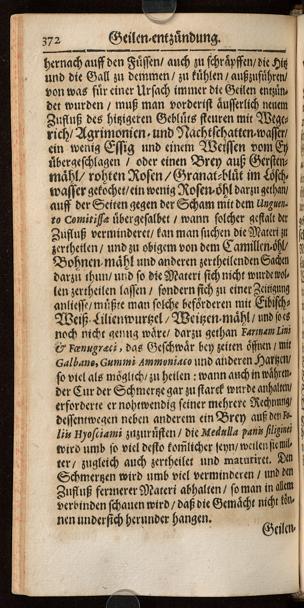 372 Geilen-entzündung.
hernach auff den Füssen / auch zu schräpffen / die Hitz
und die Gall zu demmen / zu kühlen / außzuführen /
von was für einer Ursach immer die Geilen entzün-
det wurden / muß man vorderist äusserlich neuem
Zufluß des hitzigeren Geblüts steuren mit Wege-
rich / Agrimonien- und Nachtschatten-wasser /
ein wenig Essig und einem Weissen vom Ey
übergeschlagen / oder einen Brey auß Gersten-
mähl / rohten Rosen / Granat-blüt im Lösch-
wasser gekochet / ein wenig Rosen-öhl darzu gethan /
auff der Seiten gegen der Scham mit dem Unguen-
to Comitissæ übergesalbet / wann solcher gestalt der
Zufluß verminderet / kan man suchen die Materi zu
zertheilen / und zu obigem von dem Camillen-öhl /
Bohnen-mähl und anderen zertheilenden Sachen
darzu thun / und so die Materi sich nicht wurde wol-
len zertheilen lassen / sondern sich zu einer Zeitigung
anliesse / müßte man solche beförderen mit Eibisch-
Weiß-Lilienwurtzel / Weitzen-mähl / und so es
noch nicht genug wäre / darzu gethan Farinam Lini
& Fœnugræci, das Geschwär bey zeiten öffnen / mit
Galbano, Gummi Ammoniaco und anderen Hartzen /
so viel als möglich / zu heilen: wann auch in währen-
der Cur der Schmertze gar zu starck wurde anhalten /
erforderte er nohtwendig seiner mehrere Rechnung /
dessentwegen neben anderem ein Brey auß den Fo-
liis Hyosciami zuzurüsten / die Medulla panis siliginei
wird umb so viel desto komlicher seyn / weilen sie mil-
ter / zugleich auch zertheilet und maturiret. Den
Schmertzen wird umb viel verminderen / und den
Zufluß fernerer Materi abhalten / so man in allem
verbinden schauen wird / daß die Gemächt nicht kön-
nen undersich herunder hangen.
Geilen-